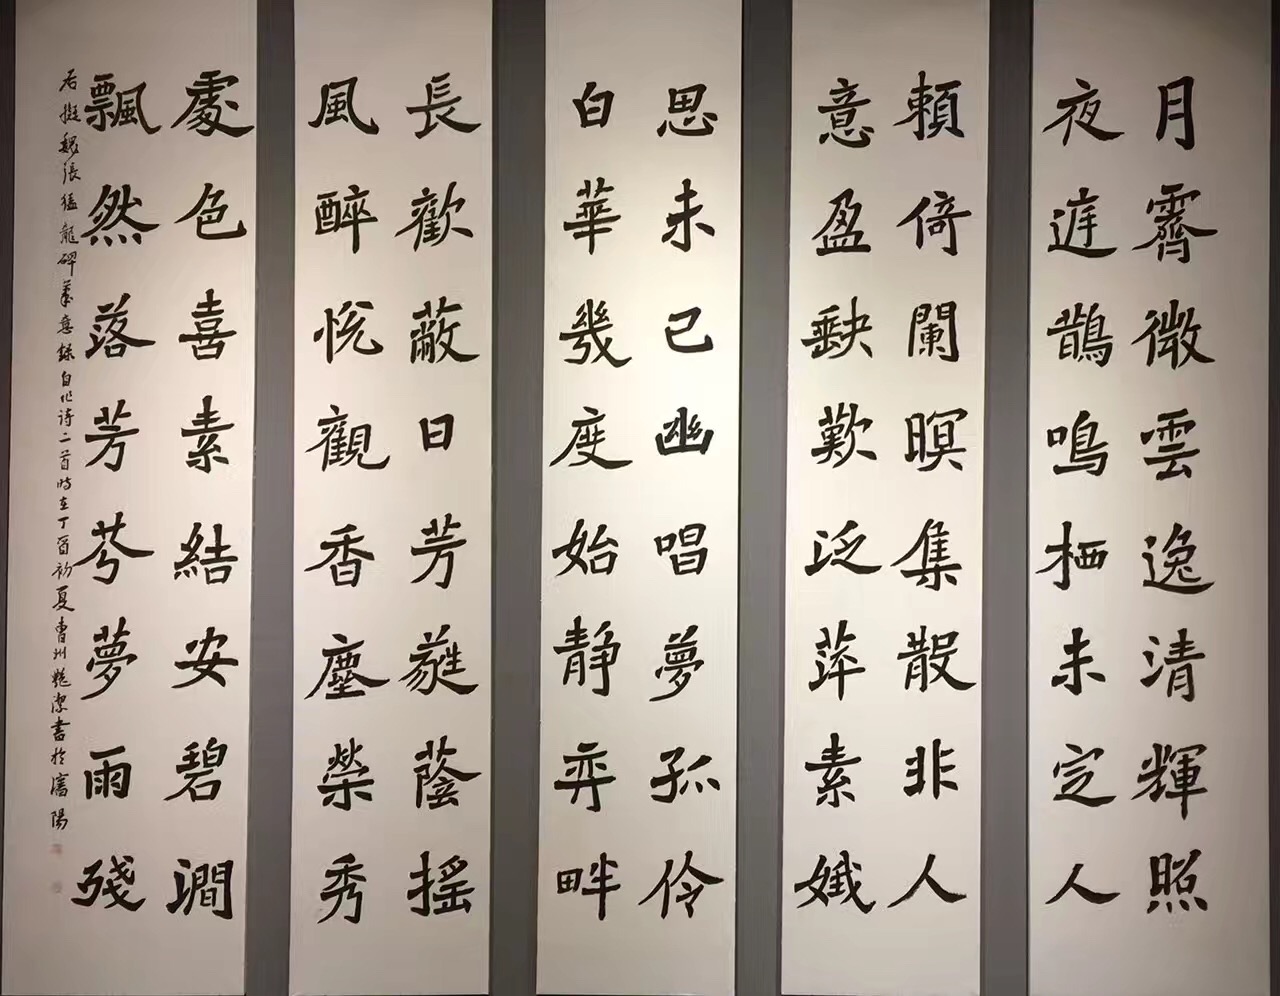 月霽微雲逸清輝照
夜庭鵲鳴栖未定人
頼倚闌暝集散非人
意盈缺歎泛萍素娥
思未已幽唱夢孤伶
白華幾度始静弄畔
長歡蔽日芳蕤蔭搖
風醉悅觀香塵榮秀
處色喜素結安碧澗
飄然落芳芩夢雨殘
右擬魏張猛龍碑筆意錄自作诗二首時在丁酉初夏曹州艷潔書於瀋陽